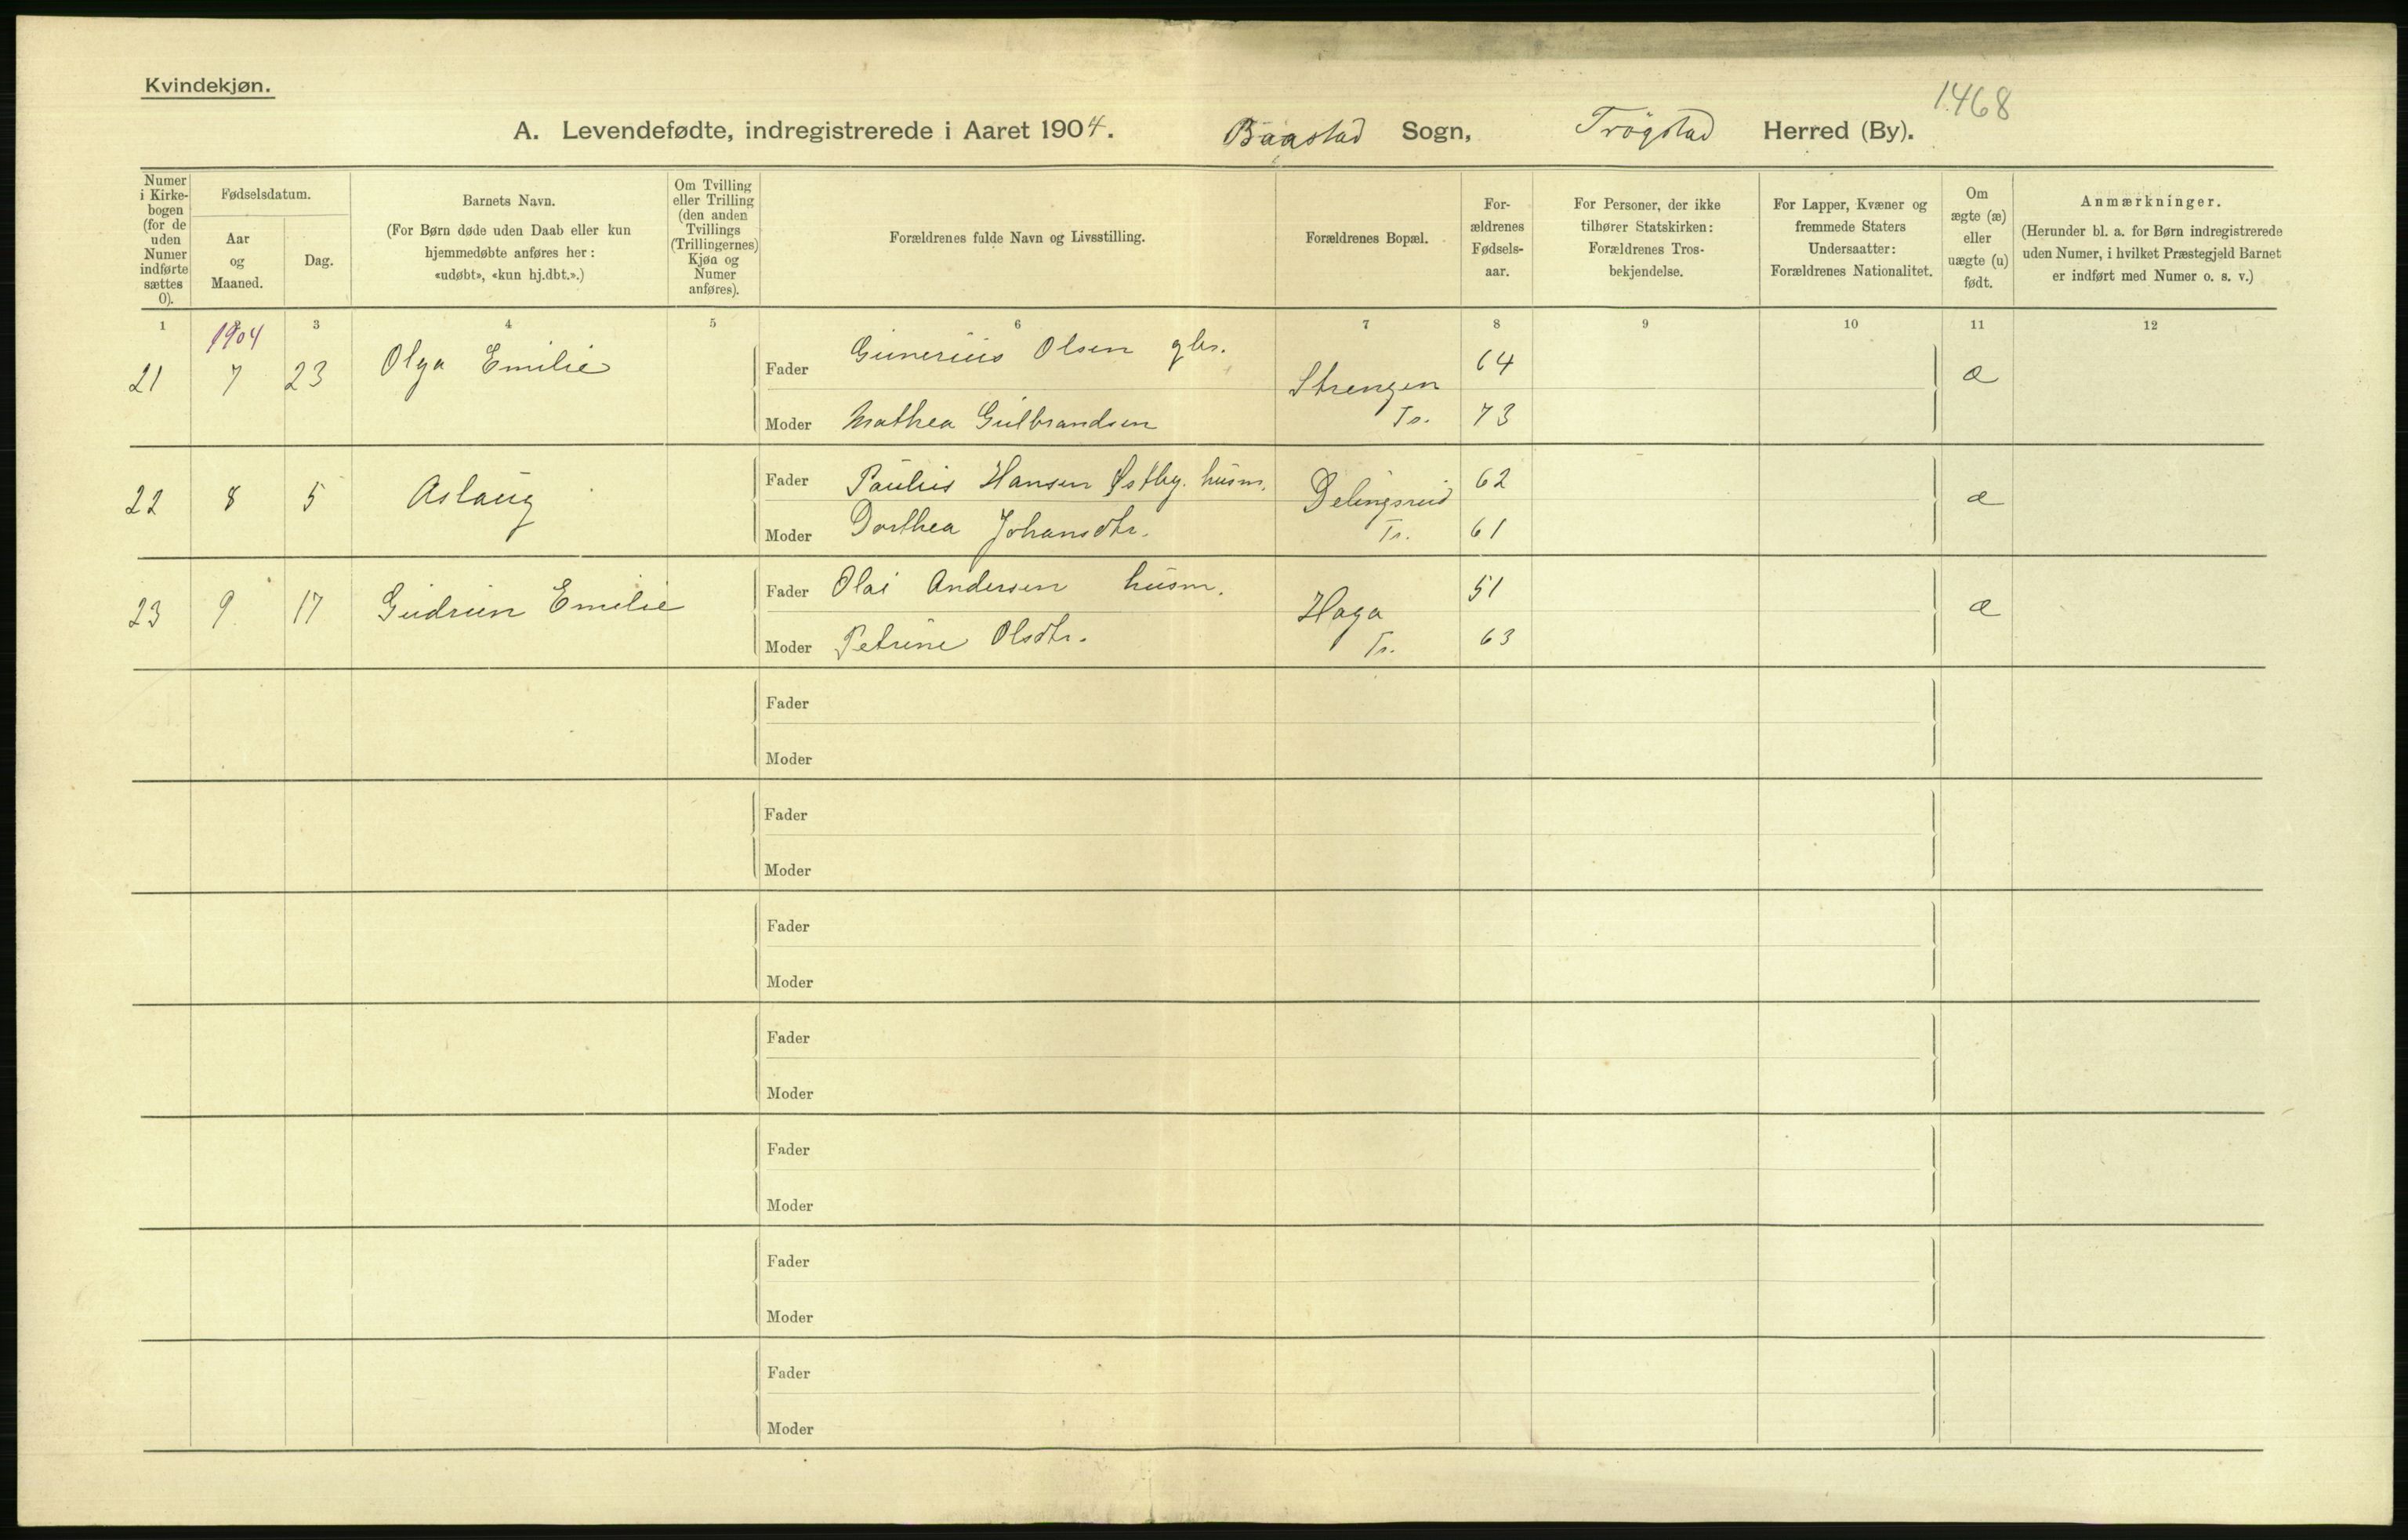 Kvindekjøn.
1468
A. Levendefødte, indregistrerede i Aaret 1904. Baastad Sogn, Trøgstad Herred (By).
Numer i Kirkebogen (for de uden Numer indførte sættes 0).
Fødselsdatum.
Aar og Maaned.
Dag.
Barnets Navn.
(For Børn døde uden Daab eller kun hjemmedøbte anføres her: «udøbt», «kun hj.dbt.».)
Om Tvilling eller Trilling (den anden Tvillings (Trillingernes) Kjøn og Numer anføres).
Forældrenes fulde Navn og Livsstilling.
Forældrenes Bopæl.
Forældrenes Fødselsaar.
For Personer, der ikke tilhører Statskirken: Forældrenes Trosbekjendelse.
For Lapper, Kvæner og fremmede Staters Undersaatter: Forældrenes Nationalitet.
Om ægte (æ) eller uægte (u) født.
Anmærkninger.
(Herunder bl. a. for Børn indregistrerede uden Numer, i hvilket Præstegjeld Barnet er indført med Numer o. s. v.)
1 2 3 4 5 6 7 8 9 10 11 12
1904
21 7 23 Olga Emilie Fader Gunerius Olsen gbr. Strengen 64 æ
Moder Mathea Gulbrandsen Tr. 73
22 8 5 Aslaug Fader Paulus Hansen Østby. husm. Delingsrud 62 æ
Moder Dorthea Johansdtr. Tr. 61
23 9 17 Gudrun Emilie Fader Olai Andersen husm. Haga 51 æ
Moder Petrine Olsdtr. Tr. 63
Fader
Moder
Fader
Moder
Fader
Moder
Fader
Moder
Fader
Moder
Fader
Moder
Fader
Moder